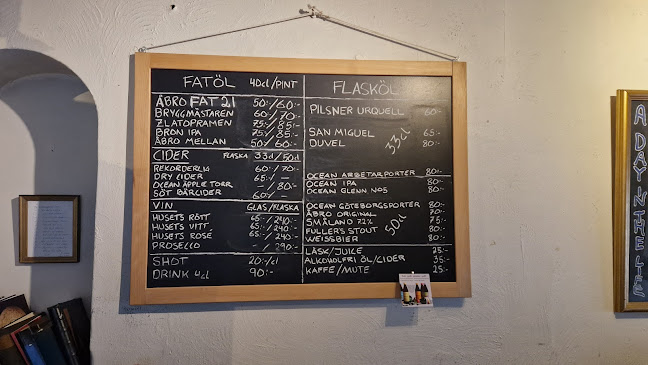 FATÖL 40cl/PINT
ÅBRO FAT 21 50:-/60:-
BRYGGMÄSTAREN 60/70:-
ZLATOPRAMEN 75:/85:-
BRON IPA 75:/85:-
ÅBRO MELLAN 50:/60:-
CIDER FLASKA 33cl/50cl
REKORDERLIG 60:/70:-
DRY CIDER 65:/-
OCEAN ÄPPLE TORR -/80:-
SÖT BÄRCIDER 60:/-
VIN GLAS/FLASKA
HUSETS RÖTT 65:-/240:-
HUSETS VITT 65:-/240:-
HUSETS ROSÉ 65:-/240:-
PROSECCO -/290:-
SHOT 20:-/cl
DRINK 4cl 90:-
FLASKÖL
PILSNER URQUELL 60:-
33cl
SAN MIGUEL 65:-
DUVEL 80:-
OCEAN ARBETARPORTER 80:-
OCEAN IPA 80:-
OCEAN GLENN NO5 80:-
50cl
OCEAN GÖTEBORGSPORTER 80:-
ÅBRO ORIGINAL 70:-
SMÅLAND 7.2% 75:-
FULLER'S STOUT 80:-
WEISSBIER 80:-
LÄSK/JUICE 25:-
ALKOHOLFRI ÖL/CIDER 35:-
KAFFE/MUTE 25:-
A DAY IN THE LIFE